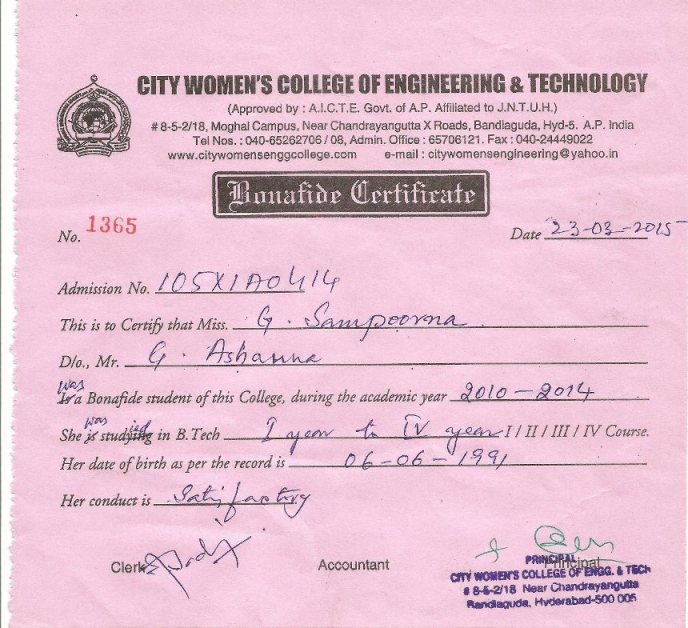 CITY WOMEN'S COLLEGE OF ENGINEERING & TECHNOLOGY
(Approved by : A.I.C.T.E. Govt. of A.P. Affiliated to J.N.T.U.H.)
# 8-5-2/18, Moghal Campus, Near Chandrayangutta X Roads, Bandlaguda, Hyd-5. A.P. India
Tel Nos. : 040-65262706 / 08, Admin. Office : 65706121. Fax : 040-24449022
www.citywomensenggcollege.com e-mail : citywomensengineering@yahoo.in
Bonafide Certificate
No. 1365 Date 23-03-2015
Admission No. 105X1A0414
This is to Certify that Miss. G. Sampoorna
D/o., Mr. G. Ashanna
was
Is a Bonafide student of this College, during the academic year 2010-2014
was ied
She is studying in B.Tech I year to IV year I / II / III / IV Course.
Her date of birth as per the record is 06-06-1991
Her conduct is Satisfactory
Clerk Accountant Principal
PRINCIPAL
CITY WOMEN'S COLLEGE OF ENGG. & TECH
# 8-5-2/18 Near Chandrayangutta
Bandlaguda, Hyderabad-500 005